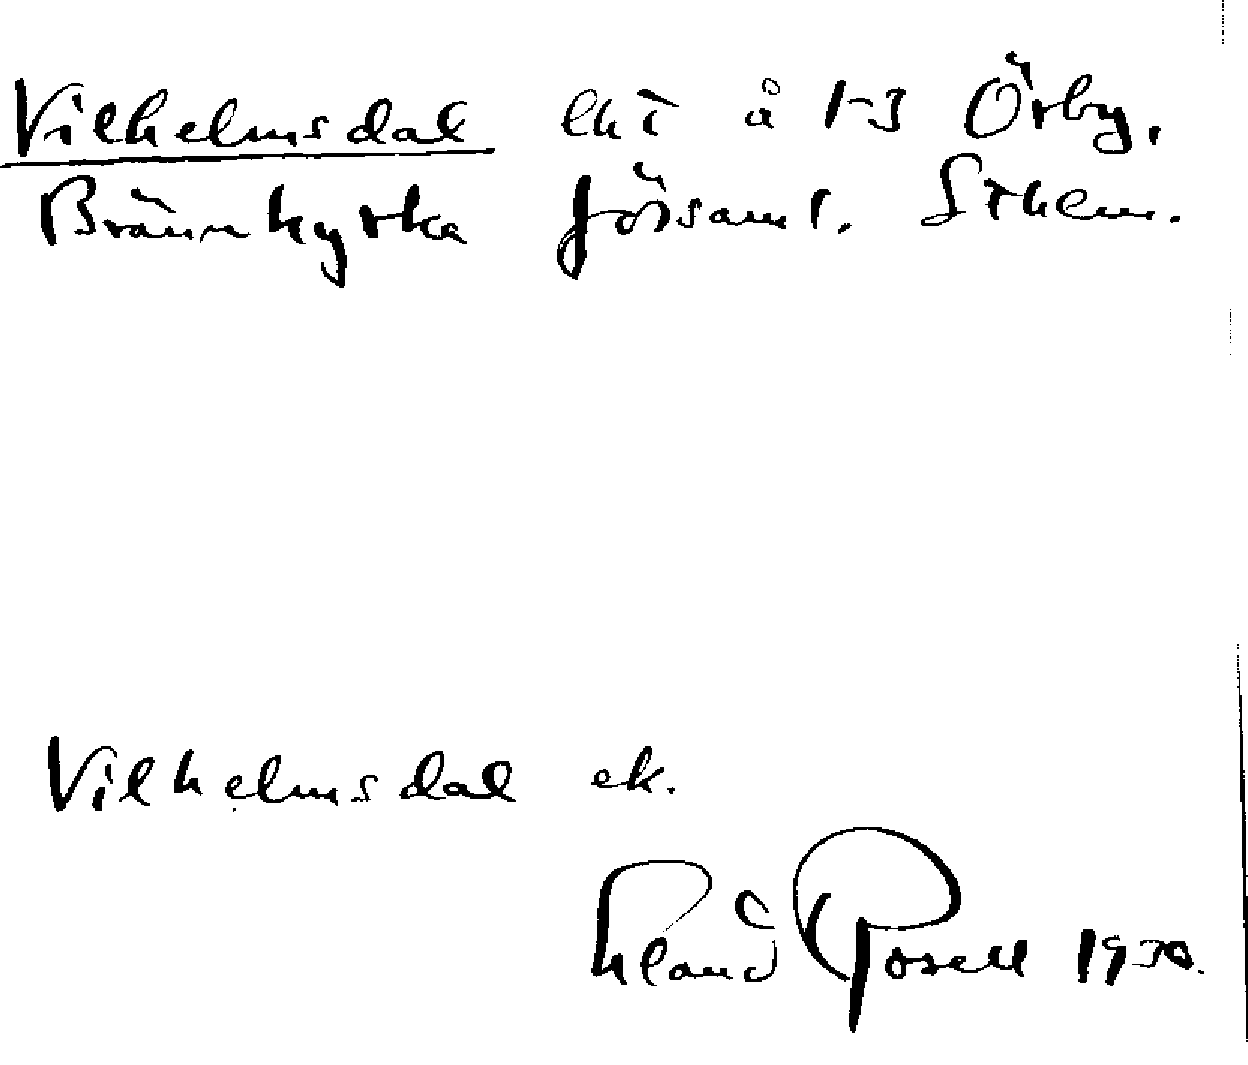 Vilhelmsdal lht å 1-3 Örby.
Brännkyrka församl. Sthlm.
Vilhelmsdal ek.
Erland Rosell 1930.